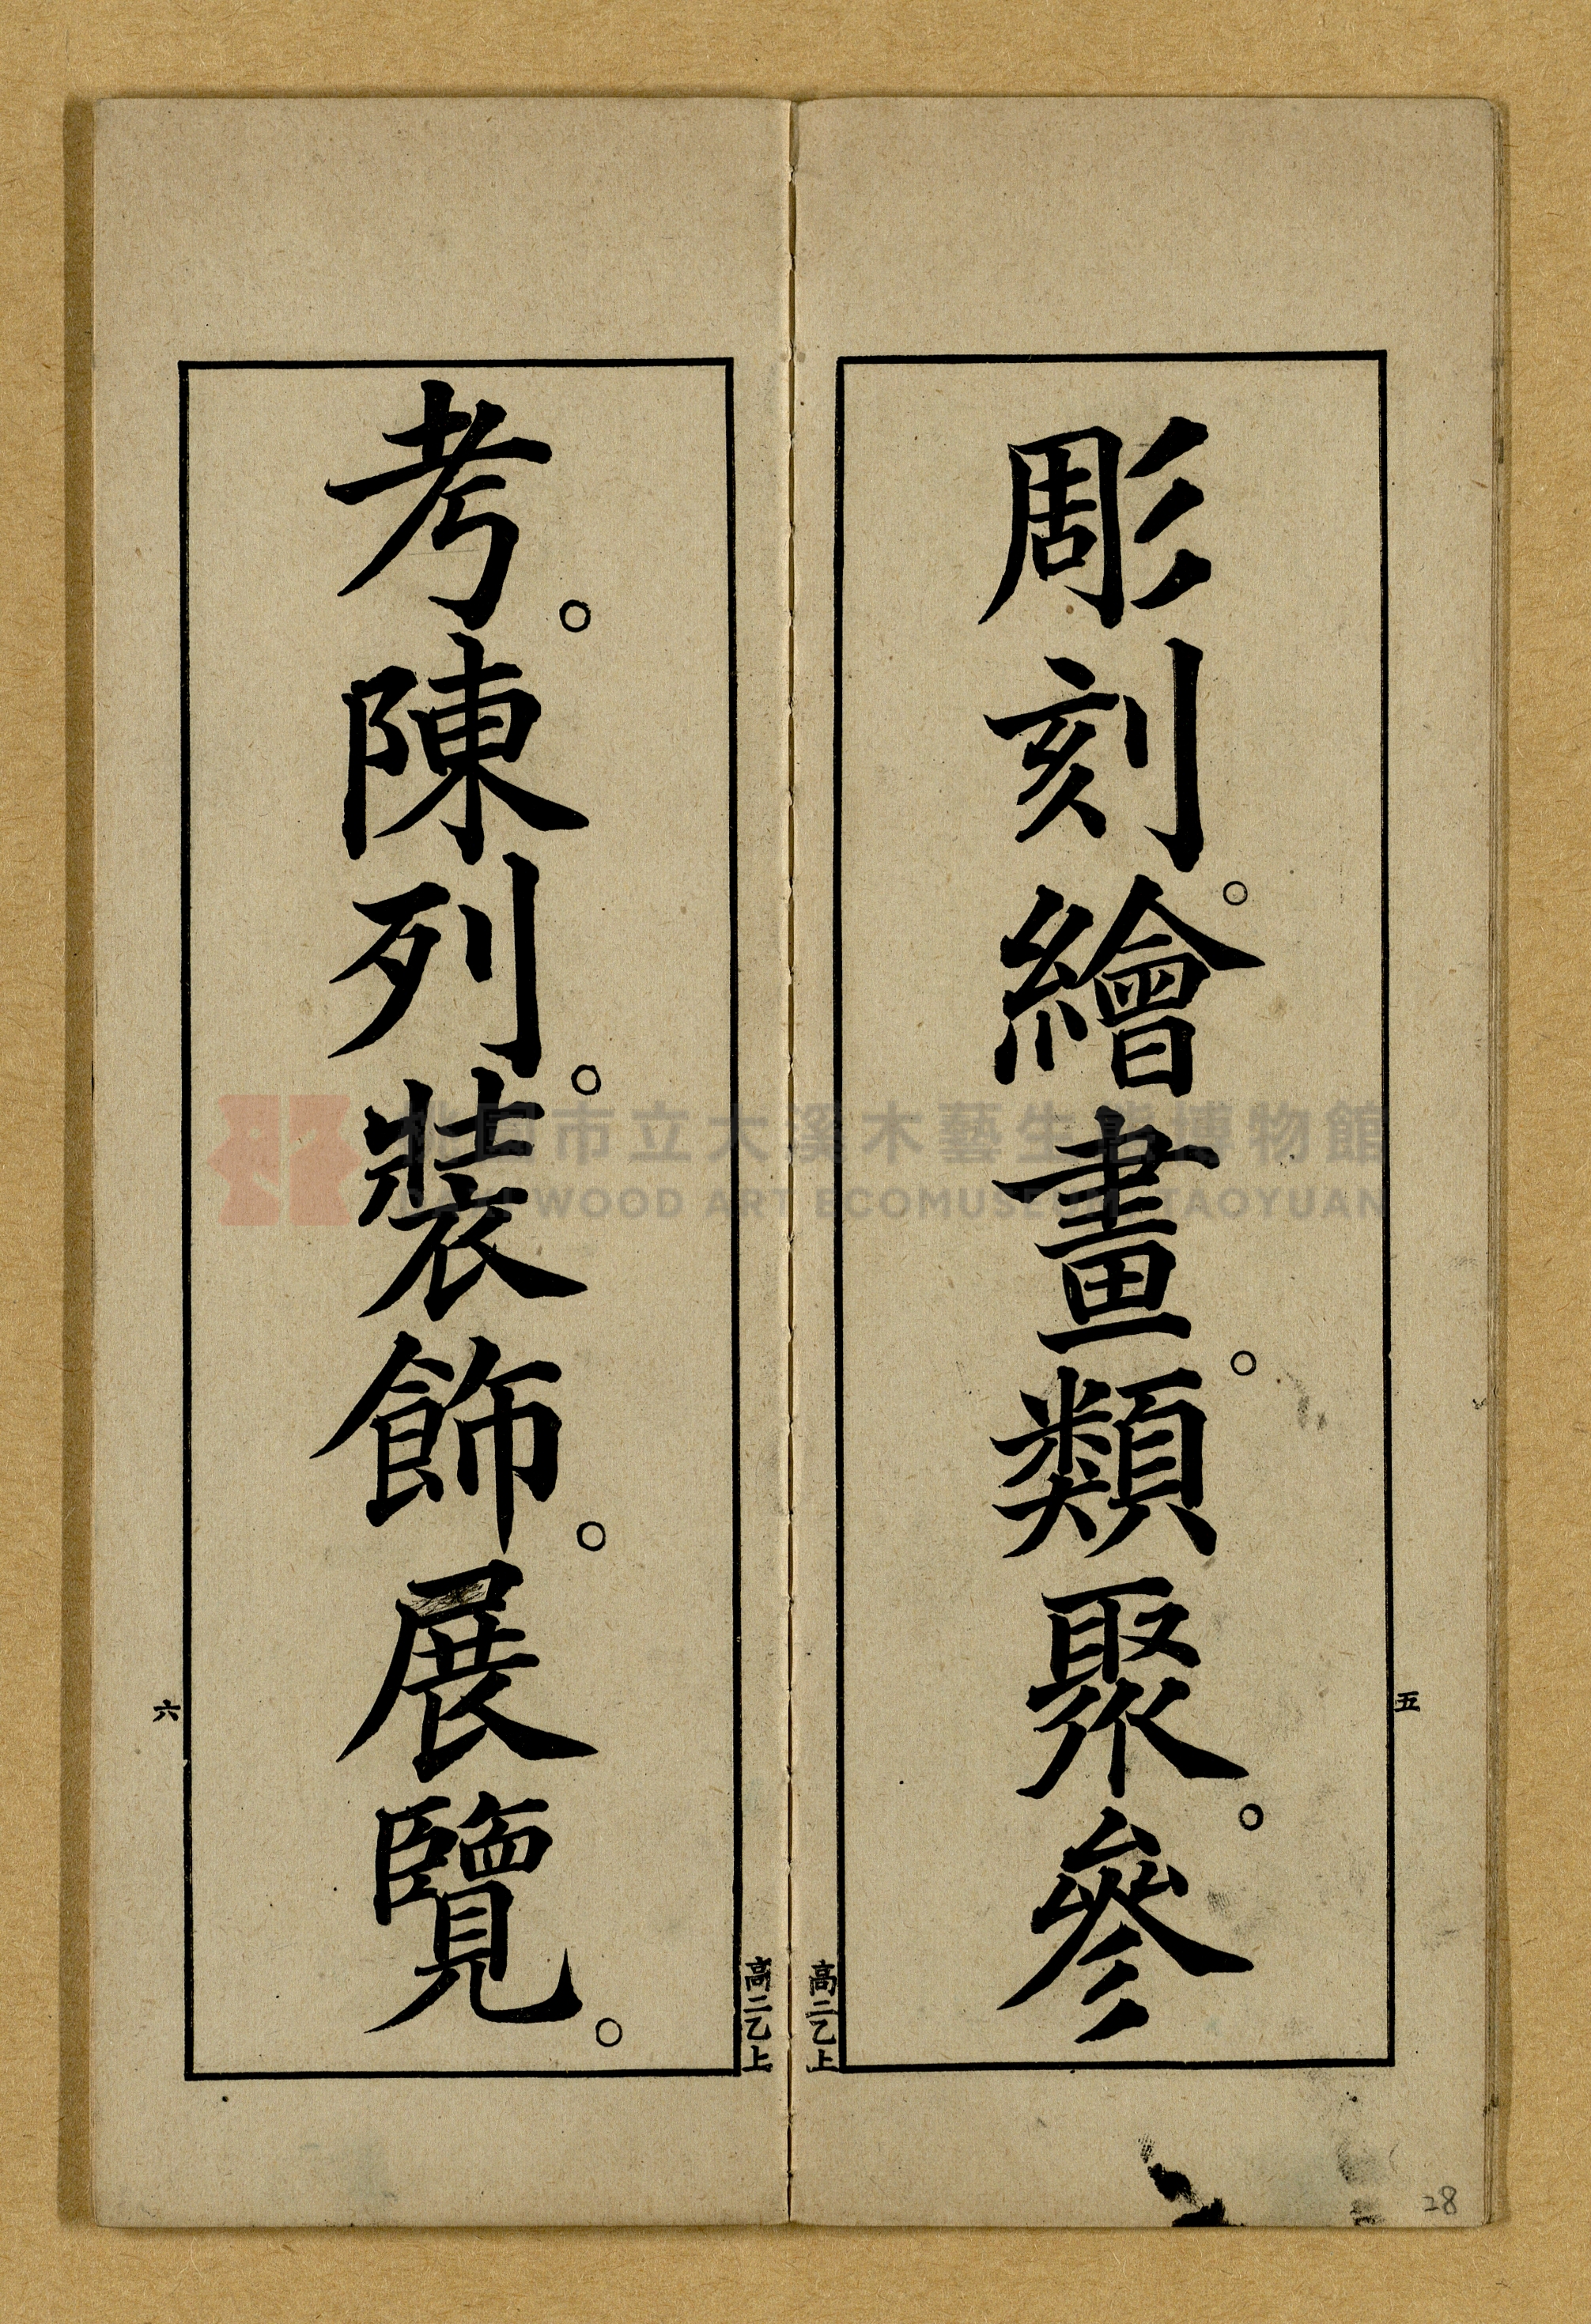 彫刻。繪畫。類聚。參
五
高二乙上
考。陳列。裝飾。展覽。
六
高二乙上
28
桃園市立大溪木藝生態博物館
DAXI WOOD ART ECOMUSEUM, TAOYUAN